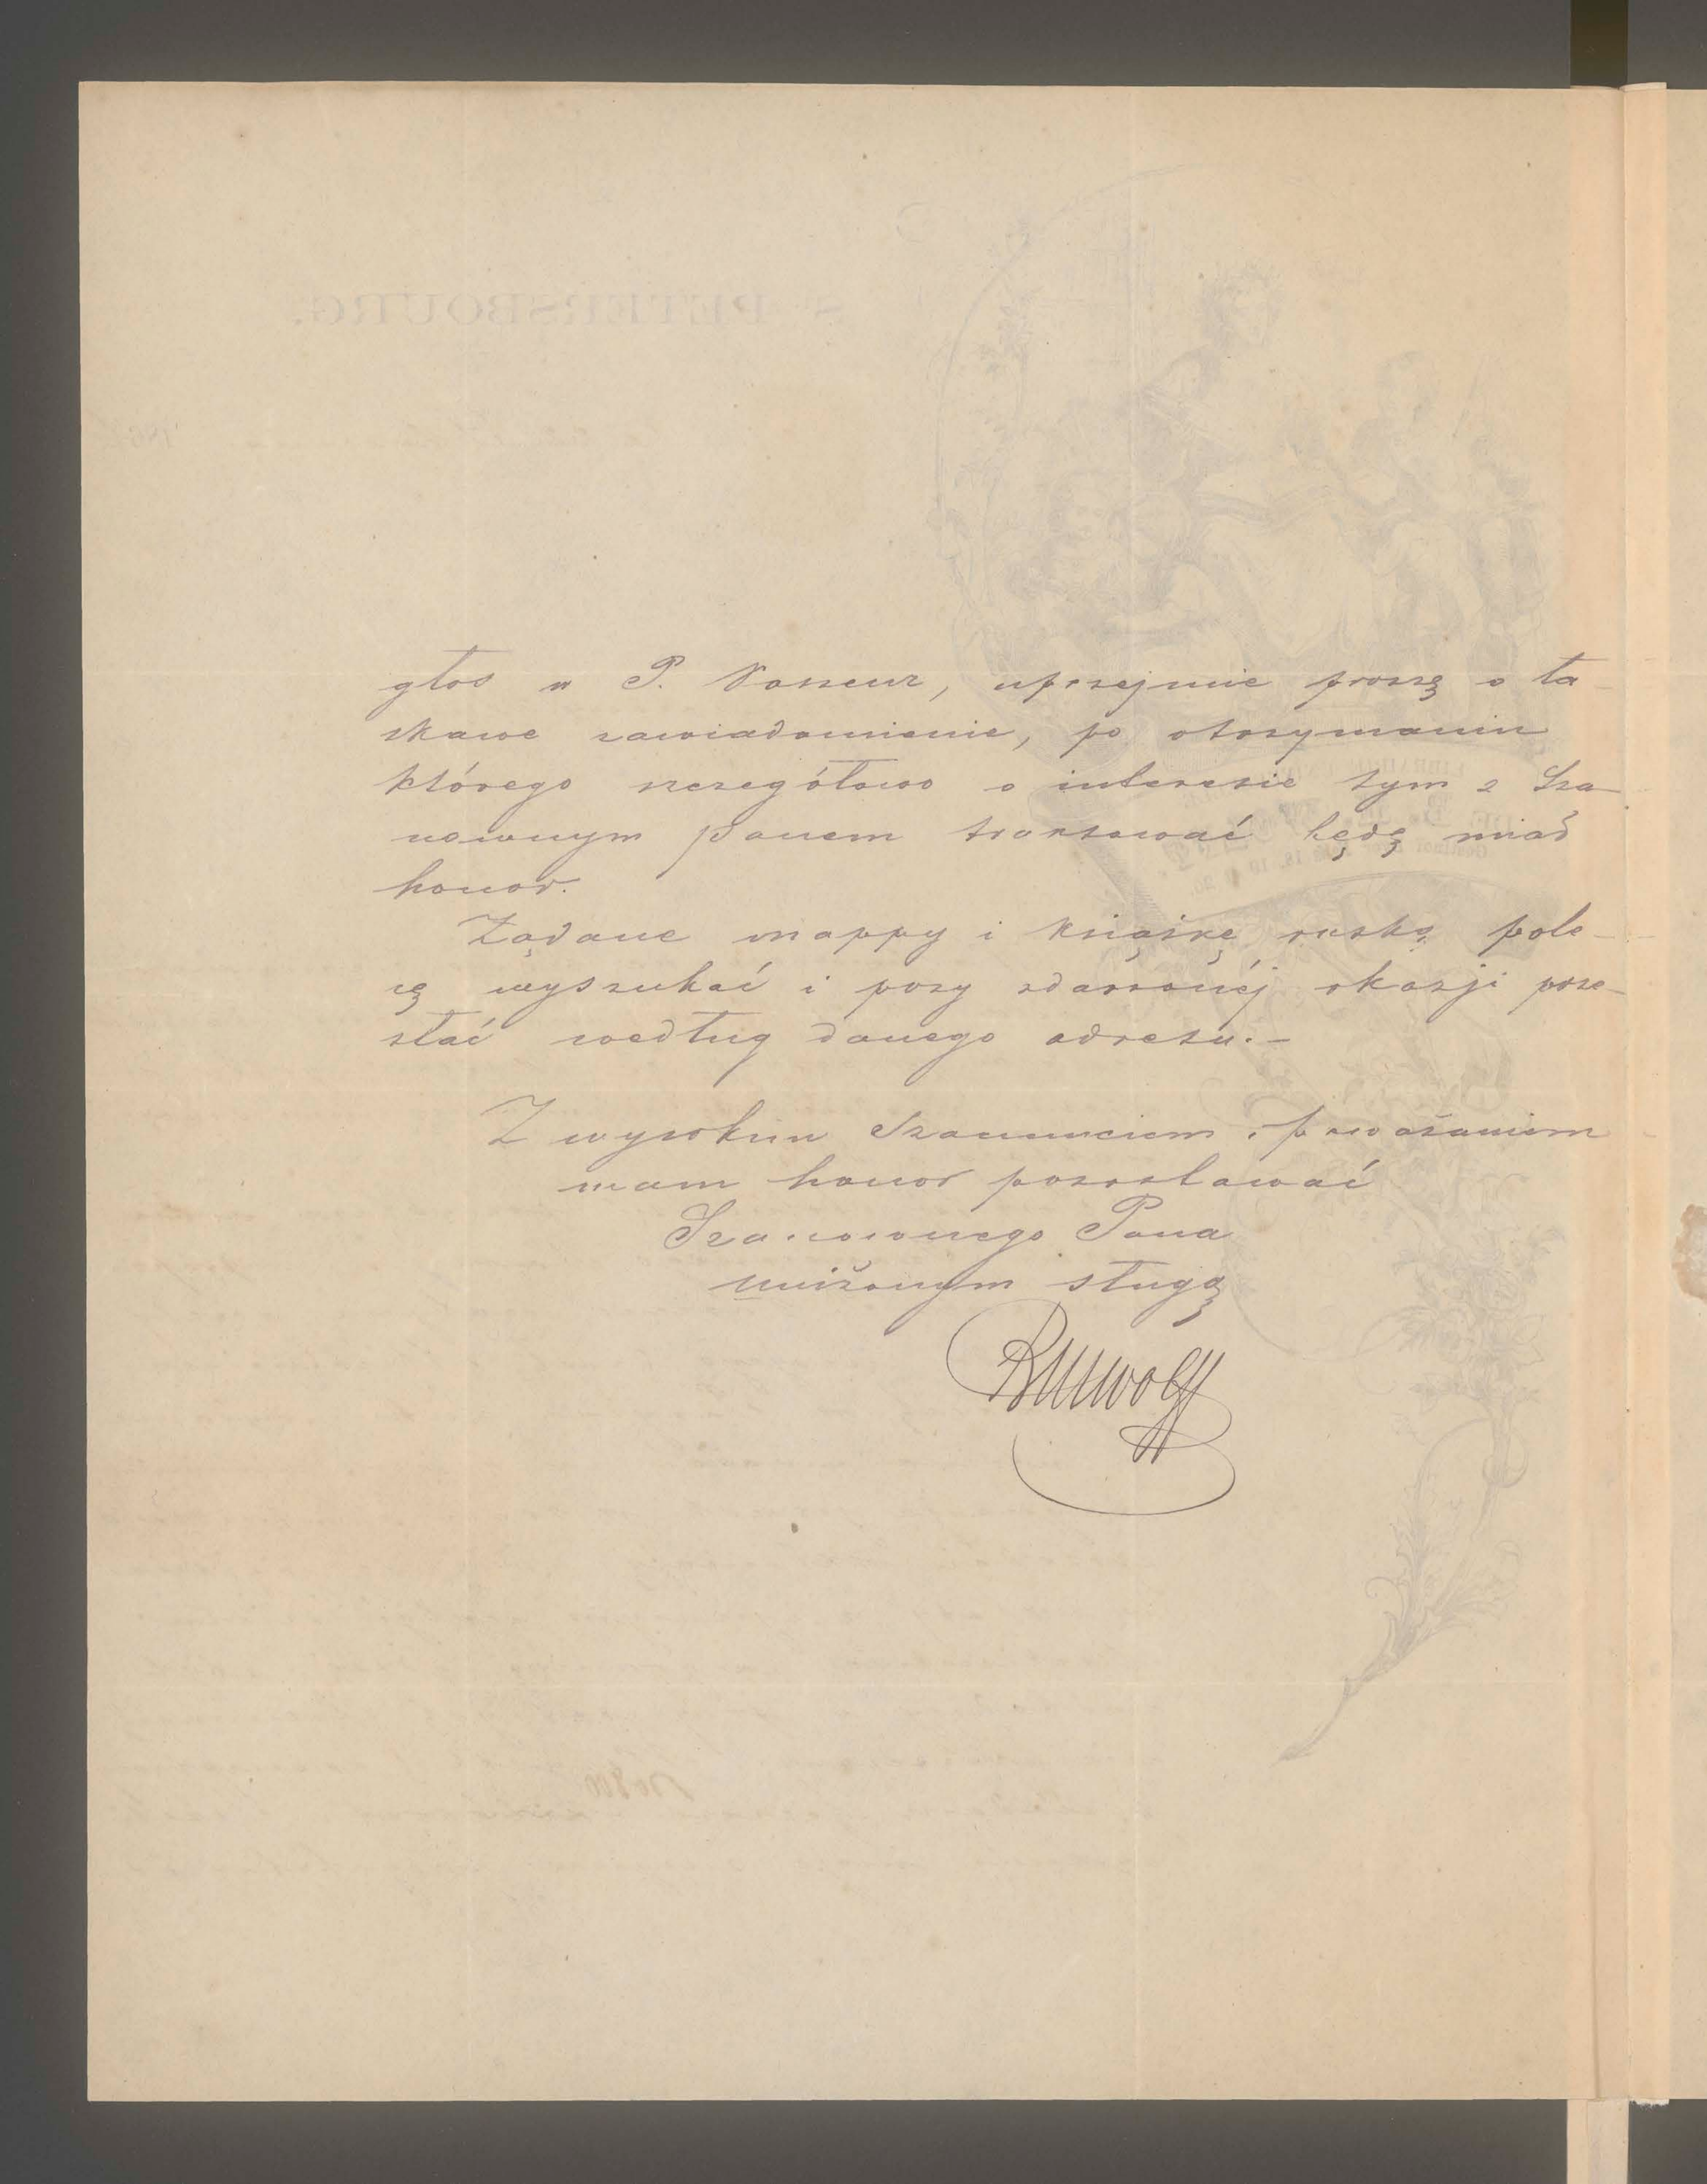 głos u P. Vasseur, uprzejmie proszę o ła-
skawe zawiadomienie, po otrzymaniu
którego szczegółowo o interesie tym z Sza-
nownym panem traktować będę miał
honor.
Żądane mappy i książkę ruską pole-
cę wyszukać i przy zdarzonéj okazji prze-
słać według danego adresu.-
Z wysokim szanunciem i poważaniem
mam honor pozostawać
Szanownego Pana
uniżonym sługą
BMWolff
St PETERSBOURG.